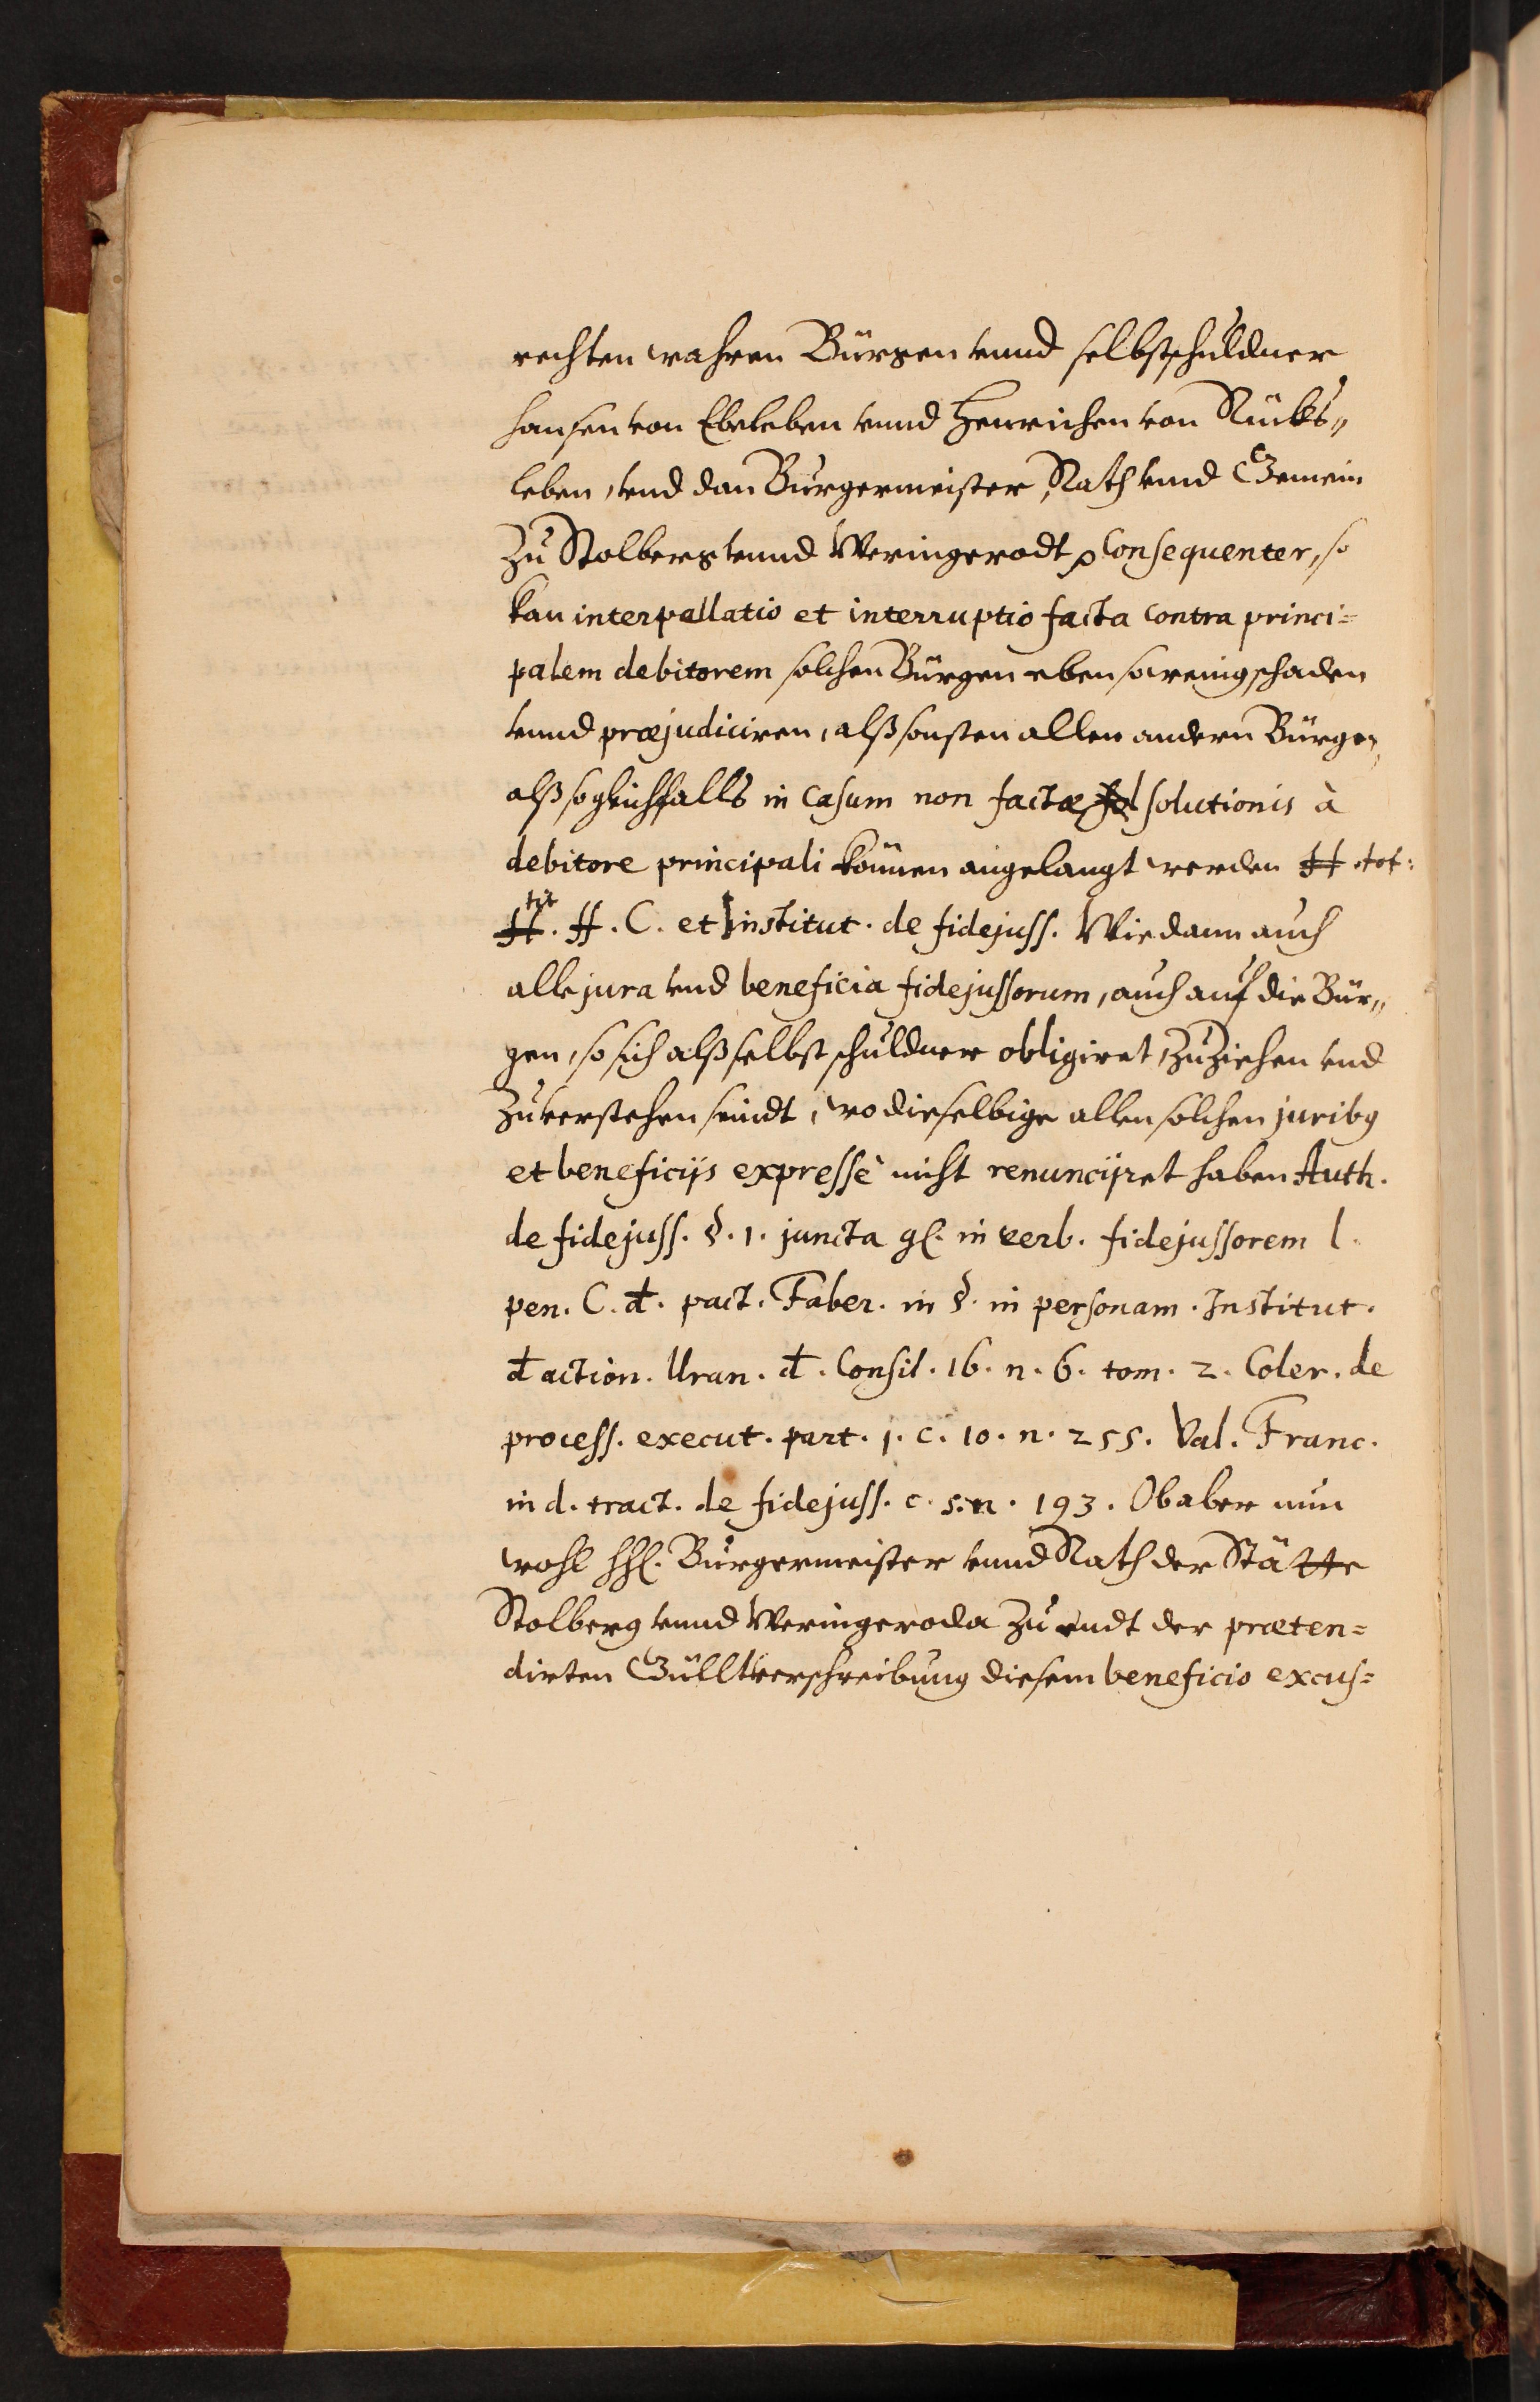 rechten wahren Bürgen vnnd selbstschuldner
hansen von Ebeleben vnnd Henrichen von Rücks„
leben, vnd dan Burgermeister, Rath vnnd Gemein
Zu Stolberg vnnd Weringerodt Consequenter, so
kan interpallatio et interruptio facta contra princi=
palem debitorem solchen Bürgen eben so wenig schaden
vnnd præjudiciren, alß sonsten allen andern Bürgen,
alß so gleichfalls in casum non factæ solutionis à
debitore principali können angelangt werden tot:
tit. ff. C. et institut. de fidejuss. Wie dann auch
alle jura vnd beneficia fidejussorum, auch auf die Bür„
gen, so sich alß selbst schuldner obligiret, zuziehen vnd
zuverstehen seindt, wo dieselbige allen solchen juribq
et beneficijs expressè nicht renuncijret haben Auth.
de fidejuss. §. 1. juncta gl. in verb. fidejussorem l.
pen. C. d. pact. Faber. in §. in personam. Institut.
d action. Uran. d. Consil. 16. n. 6. tom. 2. Coler. de
process. execut. part. 1. c. 10. n. 255. Val. Franc.
in d. tract. de fidejuss. c. 5. n. 193. Ob aber nun
wohl hhl. Burgermeister vnnd Rath der Stätte
Stolberg vnnd Weringeroda zu endt der præten=
dirten Gülltverschreibung diesem beneficio excus=